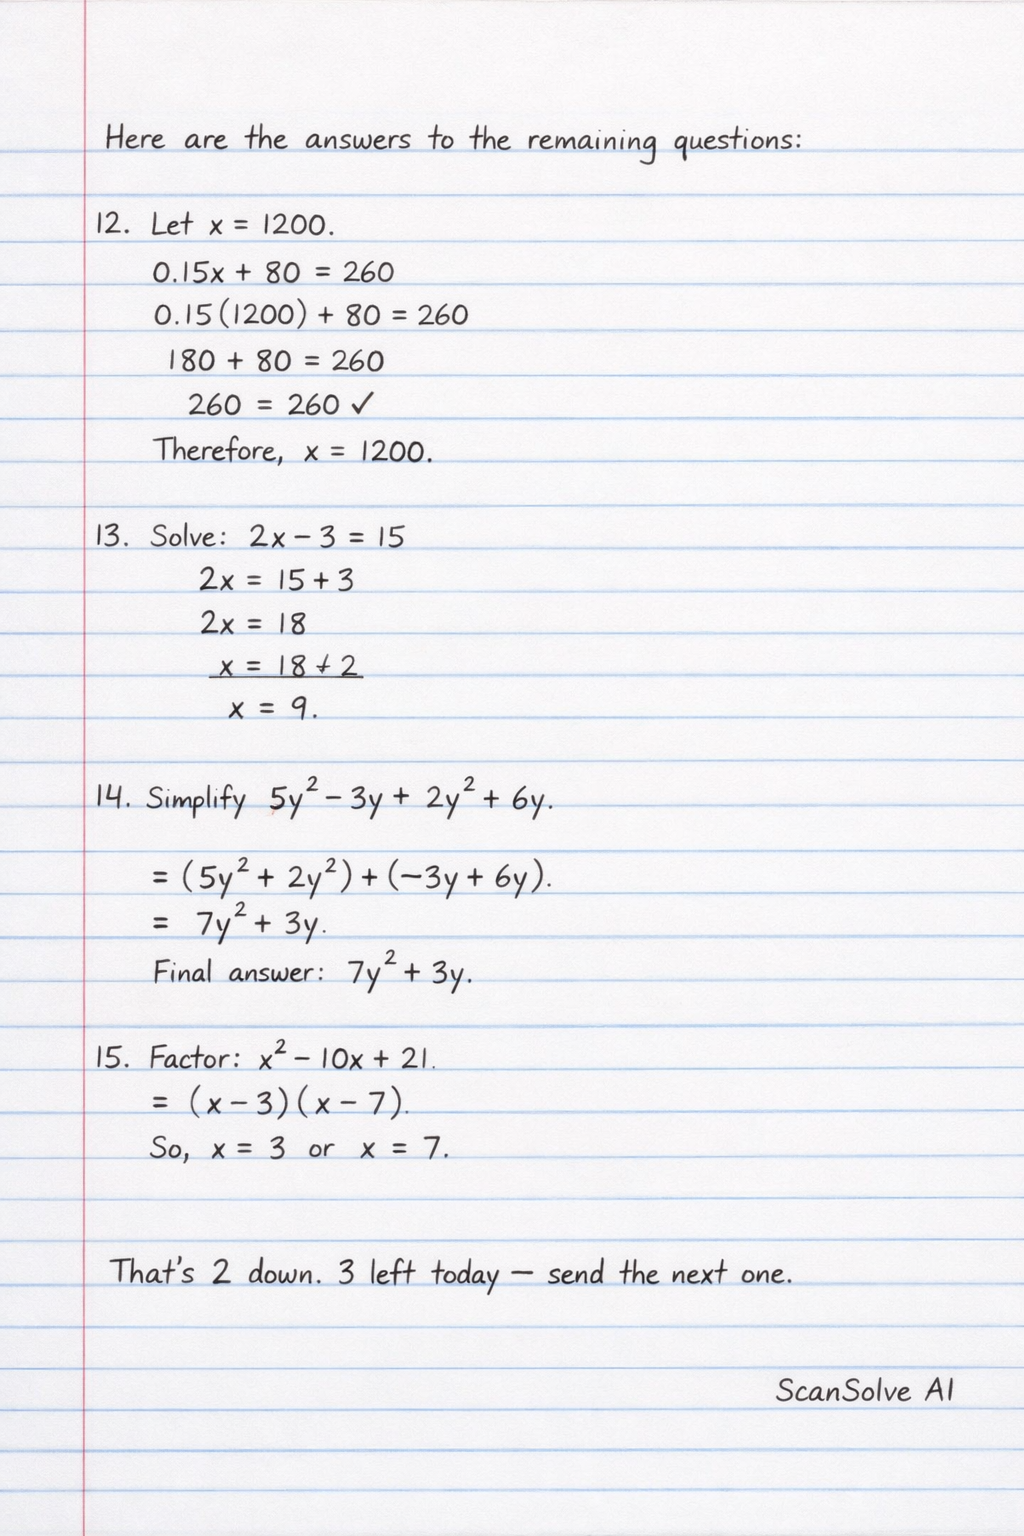 Here are the answers to the remaining questions:
12. Let x = 1200.
0.15x + 80 = 260
0.15(1200) + 80 = 260
180 + 80 = 260
260 = 260 ✓
Therefore, x = 1200.
13. Solve: 2x − 3 = 15
2x = 15 + 3
2x = 18
x = 18 ÷ 2
x = 9.
14. Simplify 5y² − 3y + 2y² + 6y.
= (5y² + 2y²) + (−3y + 6y).
= 7y² + 3y.
Final answer: 7y² + 3y.
15. Factor: x² − 10x + 21.
= (x − 3)(x − 7).
So, x = 3 or x = 7.
That's 2 down. 3 left today — send the next one.
ScanSolve AI